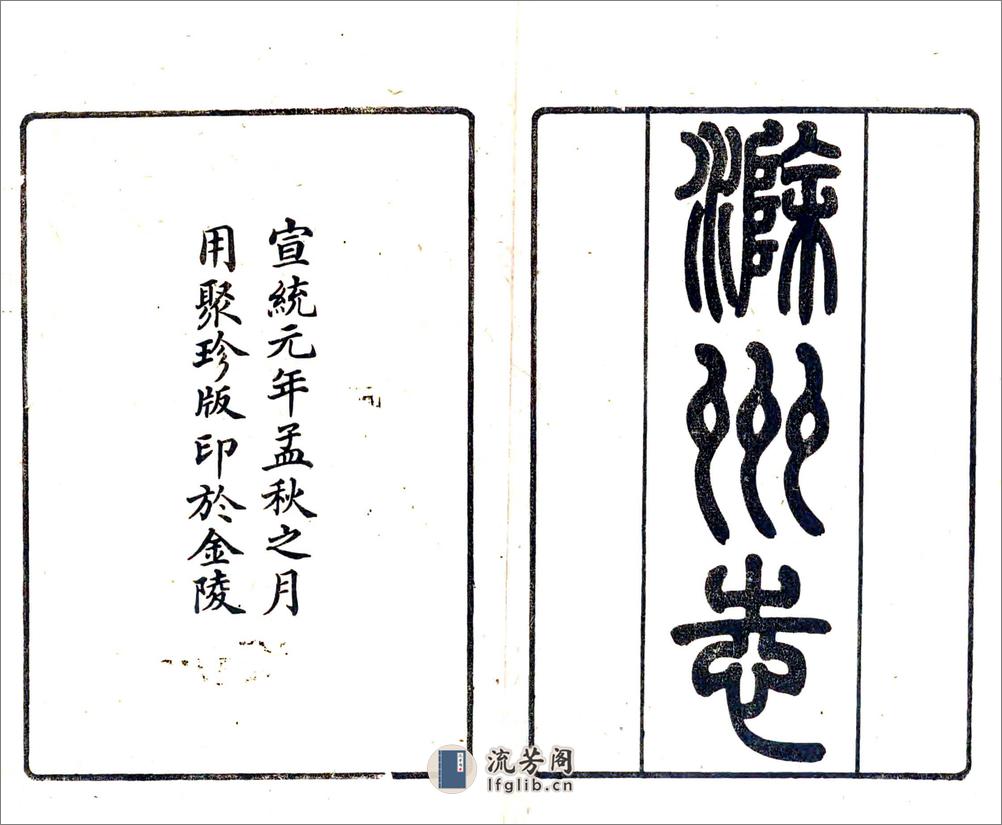 滁州志
宣統元年孟秋之月
用聚珍版印於金陵
流芳阁
lfglib.cn